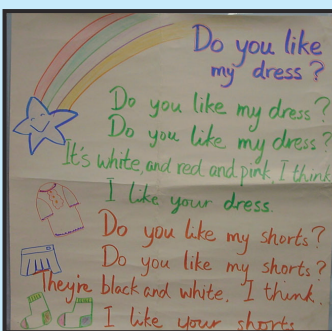 Do you like
my dress?
Do you like my dress?
Do you like my dress?
It's white, and red and pink, I think
I like your dress.
Do you like my shorts?
Do you like my shorts?
They're black and white, I think.
I like your shorts